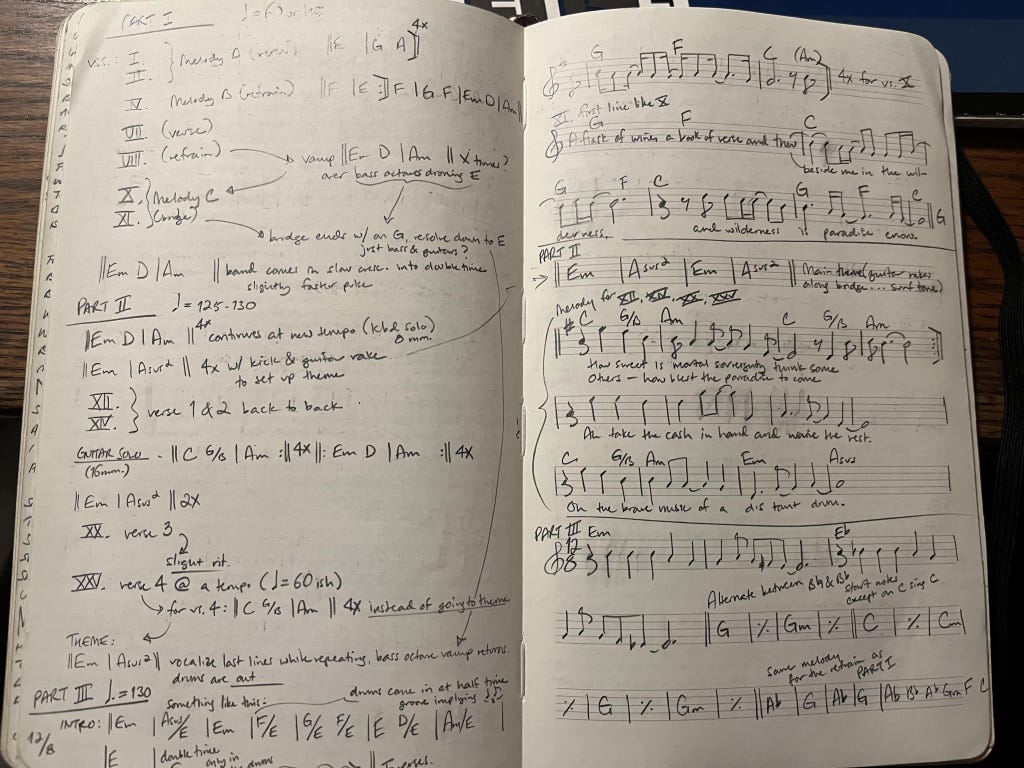 PART I
♩=60 or less
vss.: I.
II. } Melody A (verse) ||E |G A :|| 4x
IV. Melody B (refrain) ||F |E :|| F |G F |Em D |Am ||
VII. (verse)
VIII. (refrain) → vamp ||Em D |Am || X times?
over bass octaves droning E
X. } Melody C
XI. (bridge)
bridge ends w/ an G, resolve down to E
just bass & guitars?
||Em D |Am || band comes in slow cresc. into double time
slightly faster pulse
PART II ♩=125-130
||Em D |Am || 4x continues at new tempo (kbd solo)
8 mm.
||Em |Asus2 || 4x w/ kick & guitar rake
to set up theme
XII.
XIV. } verse 1 & 2 back to back
GUITAR SOLO - ||C G/B |Am :|| 4X ||: Em D |Am :|| 4X
(16mm.)
||Em |Asus2 || 2X
XX. verse 3
slight rit.
XXV. verse 4 @ a tempo (♩=60ish)
→ for vs. 4: ||C G/B |Am || 4X instead of going to theme
THEME:
||Em |Asus2|| vocalize last lines while repeating, bass octave vamp returns.
drums are out
PART III ♩.=130
something like this:
drums come in at half time
groove implying
INTRO: ||Em |Asus/E |Em |F/E |G/E F/E |E D/E |Am/E |
12/8
|E |double time
only in
drums
|| verses.
G F C (Am)
4x for vs. X
XI. first line like X
G F C
A flask of wine, a book of verse and thou
beside me in the wil-
G F C G F C G
derness, and wilderness is paradise enow.
PART II
→ ||Em |Asus2 |Em |Asus2 || Main theme (guitar rakes
along bridge... surf tone)
Melody for XII, XIV, XX, XXV
C G/B Am C G/B Am
How sweet is mortal sovereignty think some
Others - how blest the paradise to come
Ah take the cash in hand and waive the rest.
C G/B Am Em Asus
Oh the brave music of a distant drum.
PART III Em Eb
12/8
Alternate between B♮ & Bb
start notes
except on C sing C
||G |٪ |Gm |٪ ||C |٪ |Cm|
same melody
for the refrain as
PART I
٪ |G |٪ |Gm |٪ ||Ab |G |Ab |G |Ab Bb Ab Gm F C